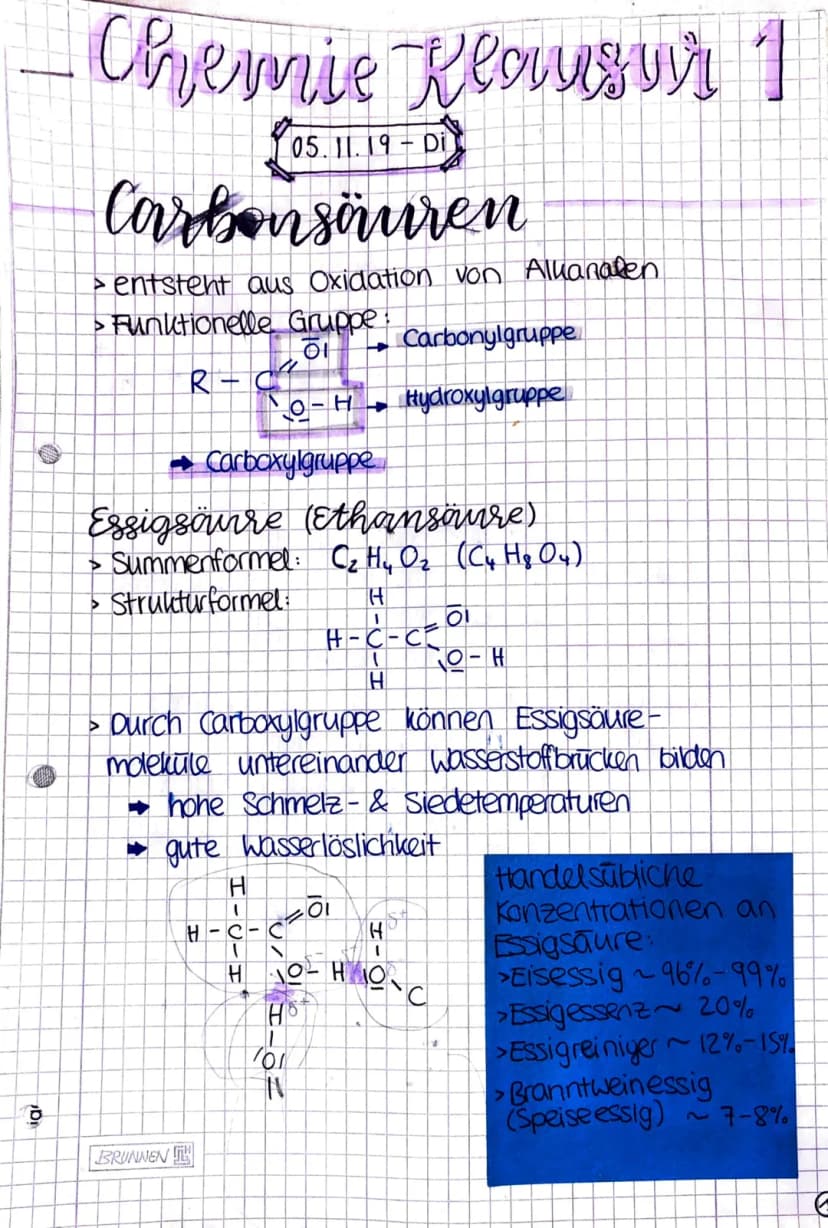 Chemie Klausur 1
05.11.19 - Di
Carbonsäuren
> entsteht aus Oxidation von Alkanalen
> Funktionelle Gruppe:
O → Carbonylgruppe
R - C
O - H → Hydroxylgruppe
→ Carboxylgruppe
Essigsäure (Ethansäure)
> Summenformel: C₂H₄O₂ (C₄H₈O₄)
> Strukturformel:
H
O
H - C - C
O - H
H
> Durch Carboxylgruppe können Essigsäure-
moleküle untereinander Wasserstoffbrücken bilden
→ hohe Schmelz- & Siedetemperaturen
→ gute Wasserlöslichkeit
H
O
H - C - C
H δ+
H O - H O
C
H δ+
O
Handelsübliche
Konzentrationen an
Essigsäure:
> Eisessig ~ 96%-99%
> Essigessenz ~ 20%
> Essigreiniger ~ 12%-15%
> Branntweinessig
(Speiseessig) ~ 7-8%
BRUNNEN